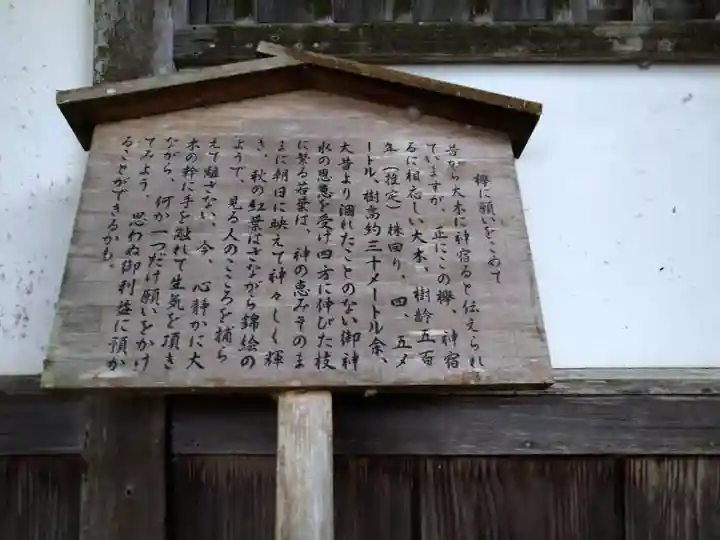 欅に願いをこめて
昔から大木に神宿ると伝えられ
ていますが、正にこの欅、神宿
るに相応しい大木、樹齢五百
年（推定）株回り、四、五メ
ートル、樹高約三十メートル余、
大昔より涸れたことのない御神
水の恩恵を受け四方に伸びた枝
に繁る若葉は、神の恵みそのま
まに朝日に映えて神々しく輝
き、秋の紅葉はさながら錦絵の
ようで、見る人のこころを捕ら
えて離さない、今、心静かに大
木の幹に手を触れて生気を頂き
ながら、何か一つだけ願いをかけ
てみよう、思わぬ御利益に預か
ることができるかも。